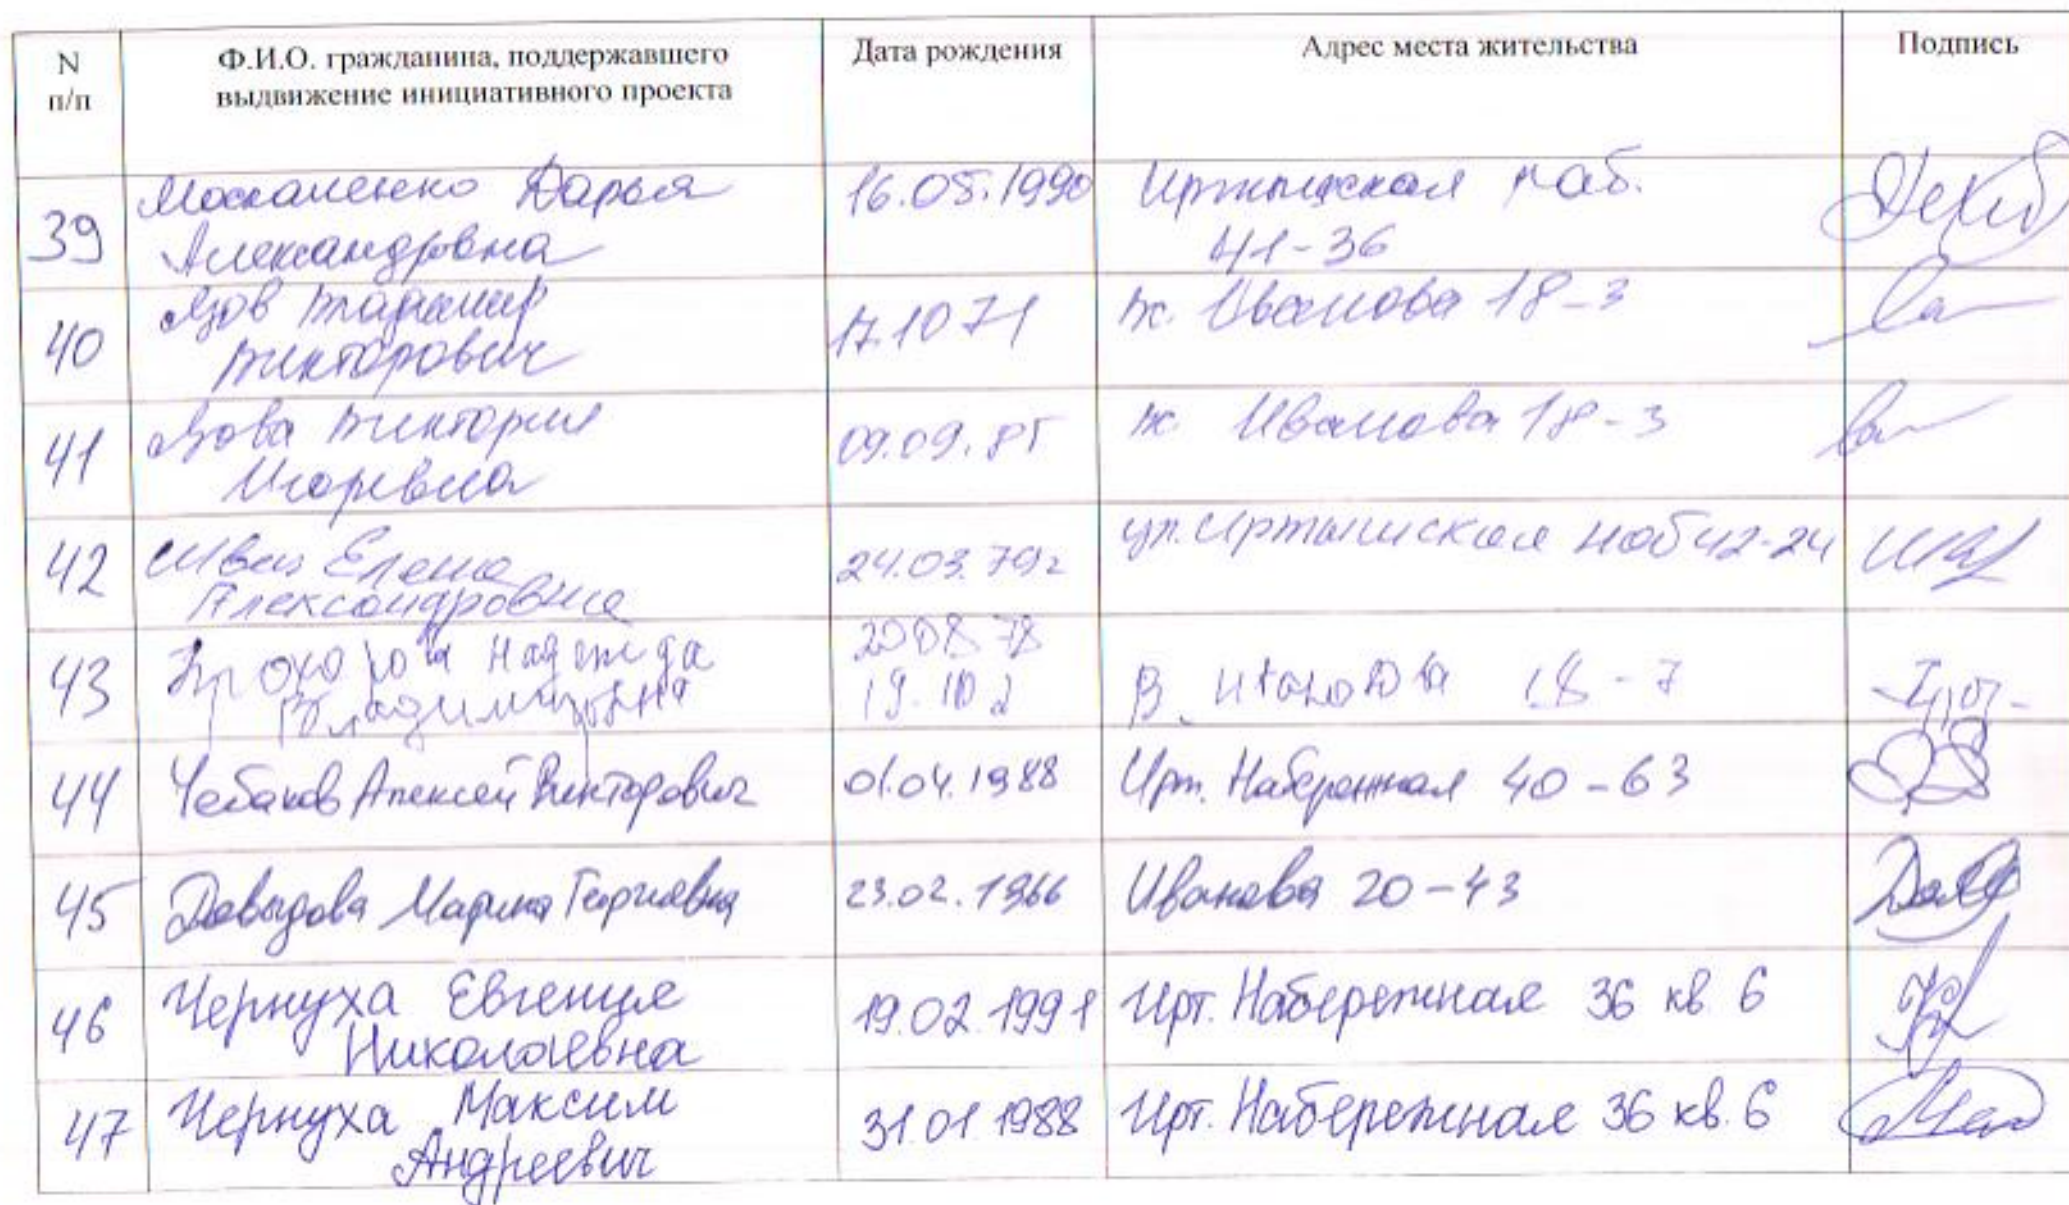 N п/п
Ф.И.О. гражданина, поддержавшего
выдвижение инициативного проекта
Дата рождения
Адрес места жительства
Подпись
39
Москаленко Дарья
Александровна
16.05.1990
Иртышская наб.
41-36
40
Язов Владимир
Викторович
17.10 71
ж. Иванова 18-3
41
Язова Виктория
Игоревна
09.09.85
ж. Иванова 18-3
42
Елена
Александровна
24.03.79г
ул. Иртышская наб 42-24
43
Прохорова Надежда
Владимировна
В. 18-7
44
Чебаков Алексей Викторович
01.04.1988
Ирт. Набережная 40-63
45
Давыдова Марина Георгиевна
23.02.1966
Иванова 20-43
46
Чернуха Евгения
Николаевна
19.02.1991
Ирт. Набережная 36 кв. 6
47
Чернуха Максим
Андреевич
31.01.1988
Ирт. Набережная 36 кв. 6